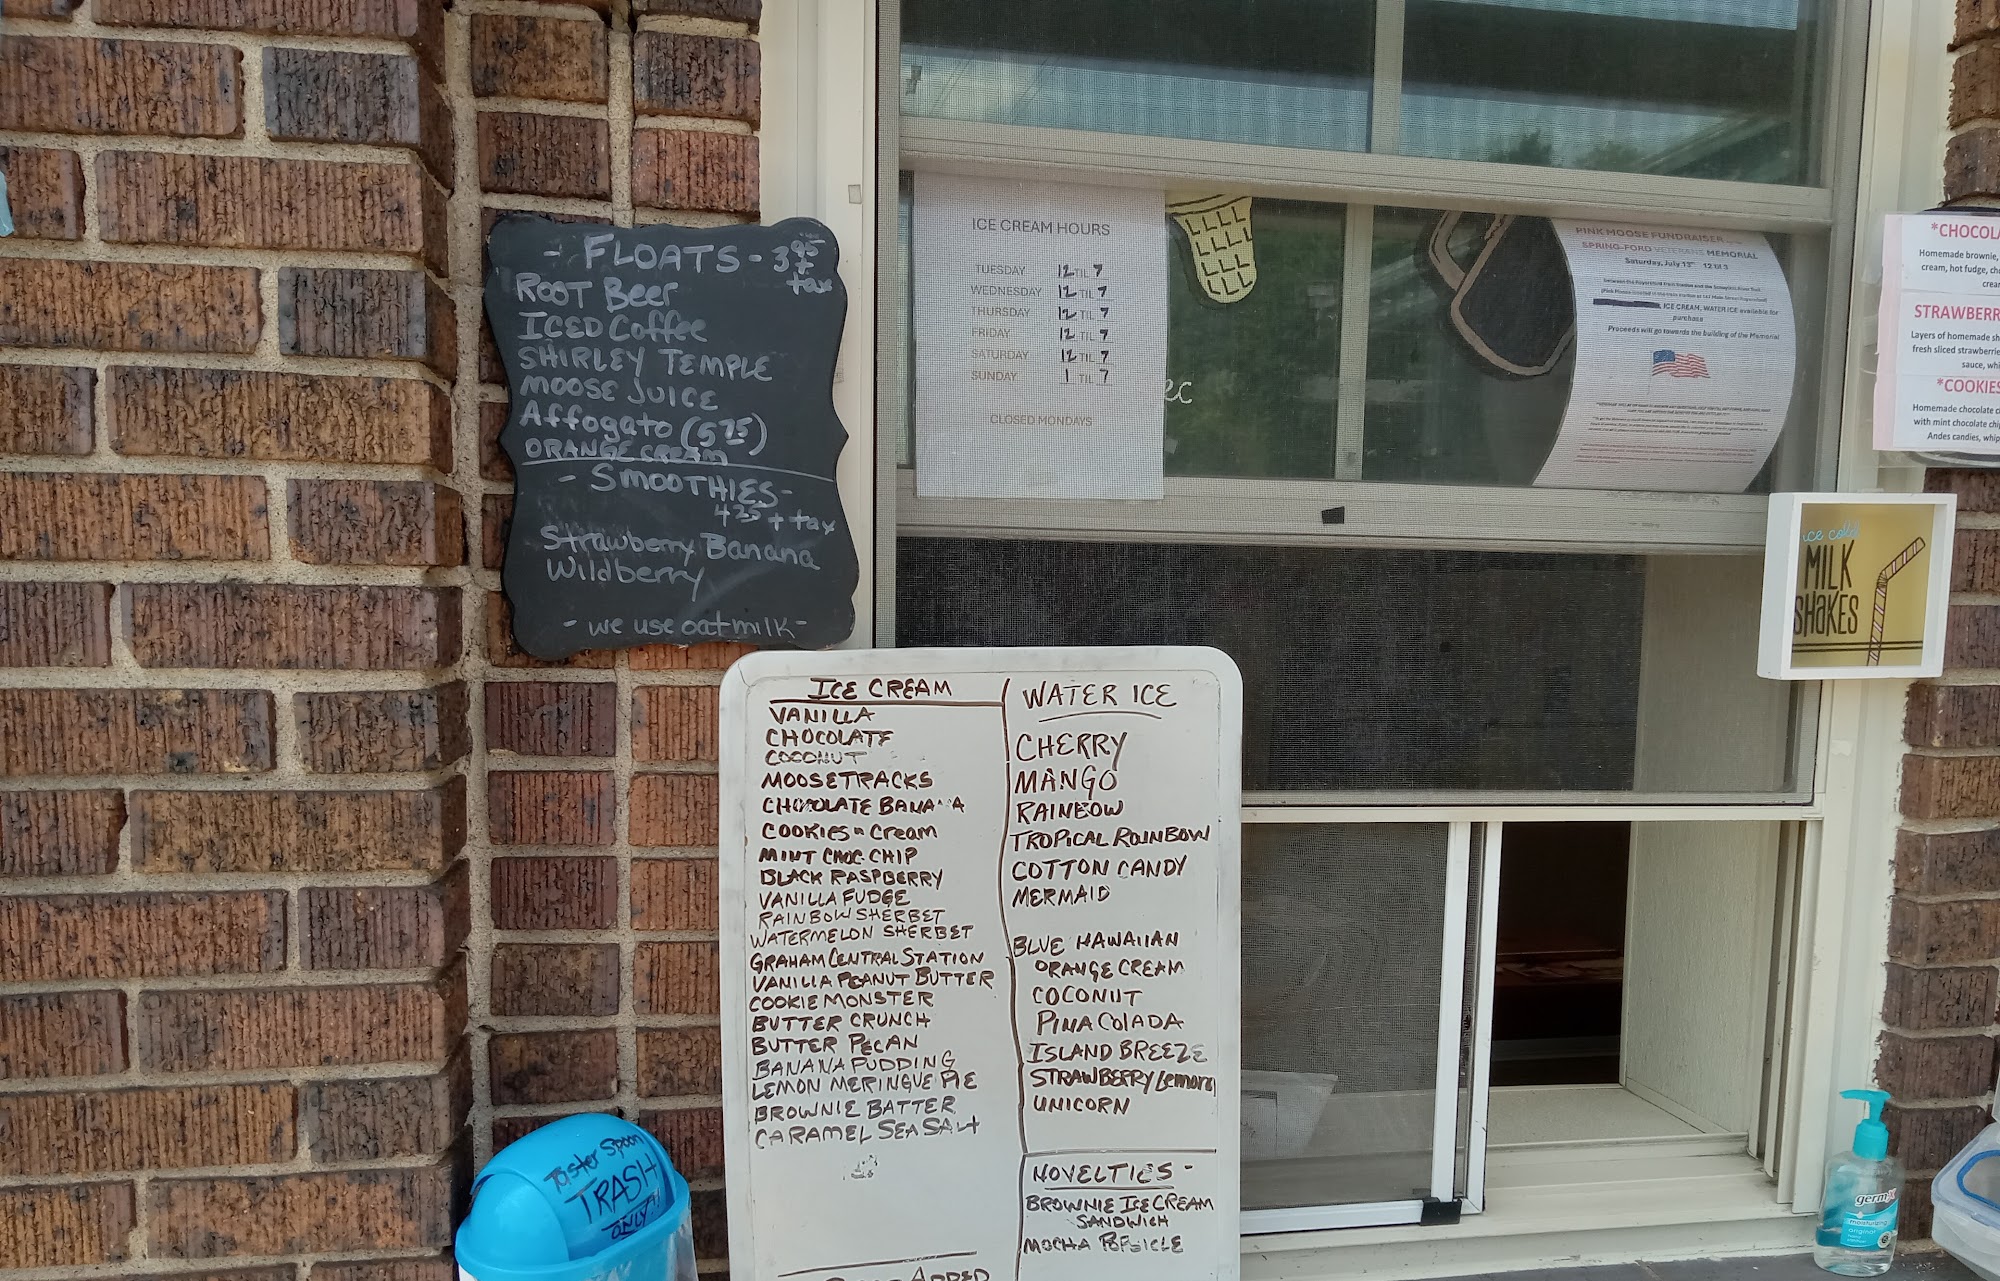 - FLOATS - 3.95
+
tax
ROOT Beer
ICED Coffee
SHIRLEY TEMPLE
MOOSE JUICE
Affogato (5.75)
ORANGE CREAM
- SMOOTHIES-
4.25 + tax
Strawberry Banana
Wildberry
- we use oatmilk -
ICE CREAM HOURS
TUESDAY 12 TIL 7
WEDNESDAY 12 TIL 7
THURSDAY 12 TIL 7
FRIDAY 12 TIL 7
SATURDAY 12 TIL 7
SUNDAY 1 TIL 7
CLOSED MONDAYS
ec
PINK MOOSE FUNDRAISER
SPRING-FORD VETERANS MEMORIAL
Saturday, July 13th 12 til 3
ICE CREAM, WATER ICE available for
purchase
Proceeds will go towards the building of the Memorial
*CHOCOLA
Homemade brownie,
cream, hot fudge, cho
crea
STRAWBERR
Layers of homemade sh
fresh sliced strawberrie
sauce, whi
*COOKIES
Homemade chocolate c
with mint chocolate chip
Andes candies, whip
ice cold
MILK
SHAKES
ICE CREAM
VANILLA
CHOCOLATE
COCONUT
MOOSETRACKS
CHOCOLATE BANANA
COOKIES n CREAM
MINT CHOC. CHIP
BLACK RASPBERRY
VANILLA FUDGE
RAINBOW SHERBET
WATERMELON SHERBET
GRAHAM CENTRAL STATION
VANILLA PEANUT BUTTER
COOKIE MONSTER
BUTTER CRUNCH
BUTTER PECAN
BANANA PUDDING
LEMON MERINGUE PIE
BROWNIE BATTER
CARAMEL SEA SALT
ADDED
WATER ICE
CHERRY
MANGO
RAINBOW
TROPICAL RAINBOW
COTTON CANDY
MERMAID
BLUE HAWAIIAN
ORANGE CREAM
COCONUT
PINA COLADA
ISLAND BREEZE
STRAWBERRY Lemon
UNICORN
NOVELTIES -
BROWNIE ICE CREAM
SANDWICH
MOCHA POPSICLE
Taster Spoon
TRASH
ONLY!!
germx
moisturizing
original